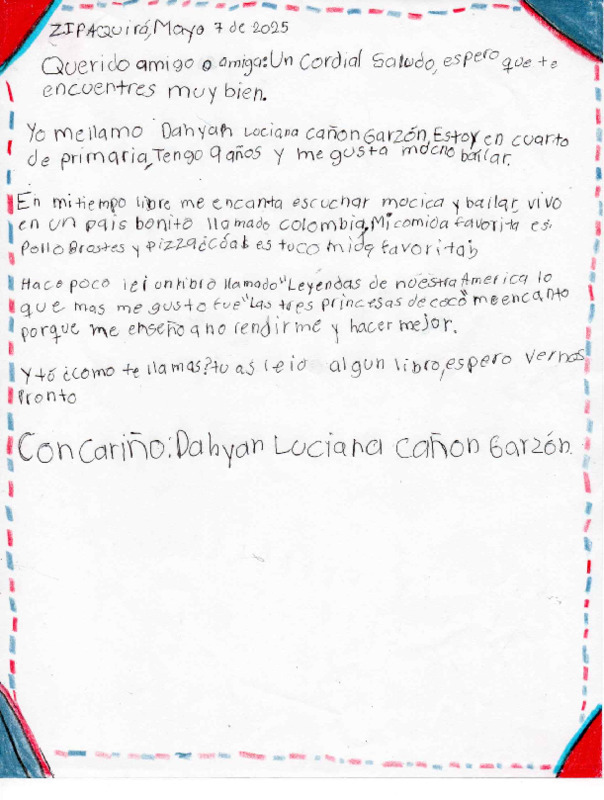 ZIPAQuirá, Mayo 7 de 2025
Querido amigo o amiga: Un Cordial Saludo, espero que te
encuentres muy bien.
Yo me llamo Dahyan Luciana cañon Garzón, Estoy en cuarto
de primaria, Tengo 9 años y me gusta mocho bailar.
En mi tiempo libre me encanta escuchar mocica y bailar, vivo
en un pais bonito llamado colombia, Mi comida favorita es.
Pollo Brostes y pizza ¿cóal es tu comida favorita?
Hace poco leí un libro llamado "Leyendas de nuestra America lo
que mas me gusto fue "Las tres princesas de coco" me encanto
porque me enseño a no rendirme y hacer mejor.
Y tó ¿como te llamas? tu as leido algun libro, espero vernos
Pronto
Con cariño: Dahyan Luciana cañon Garzón.